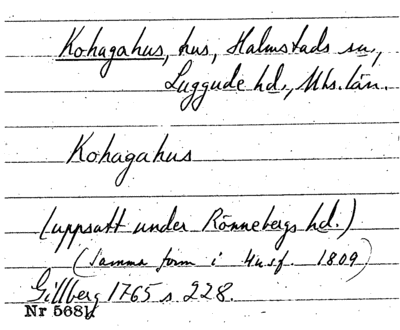 Kohagahus, hus, Halmstads sn,
Luggude hd., Mhs. län.
Kohagahus
(uppsatt under Rönnebergs hd.)
(Samma form i Husf. 1809)
Gillberg 1765 s. 228.
Nr 5681